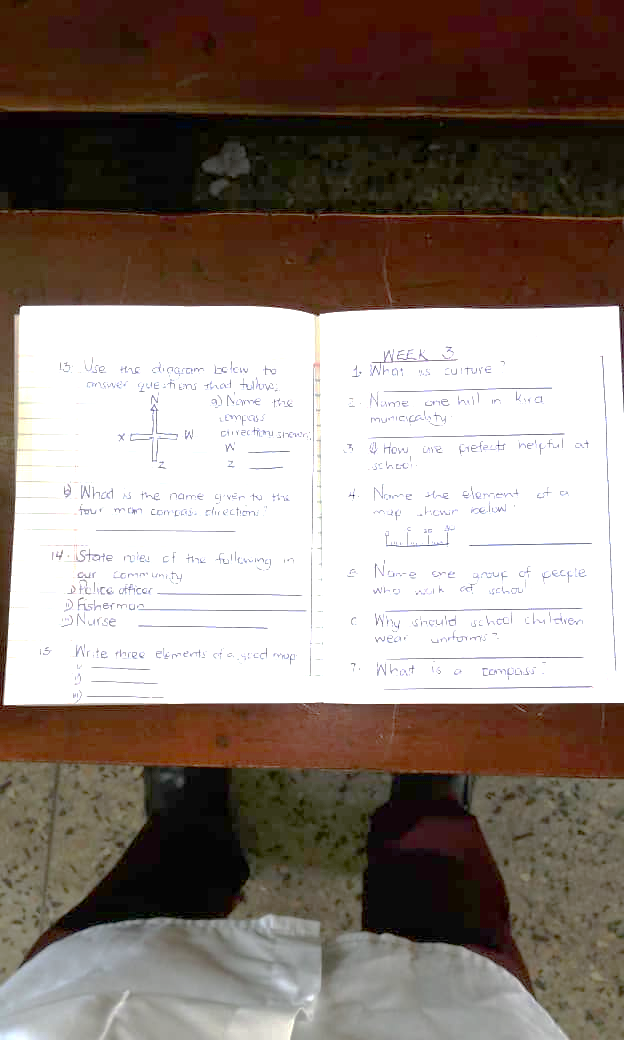 13. Use the diagram below to
answer questions that follow.
N
X W
Z
a) Name the
compass
directions shown.
W
Z
b) What is the name given to the
four main compass directions?
14. State roles of the following in
our community
i) Police officer
ii) Fisherman
iii) Nurse
15. Write three elements of a good map
i)
ii)
iii)
WEEK 3
1. What is culture?
2. Name one hill in Kira
municipality.
3. How are prefects helpful at
school.
4. Name the element of a
map shown below?
5. Name one group of people
who work at school
6. Why should school children
wear uniforms?
7. What is a compass?